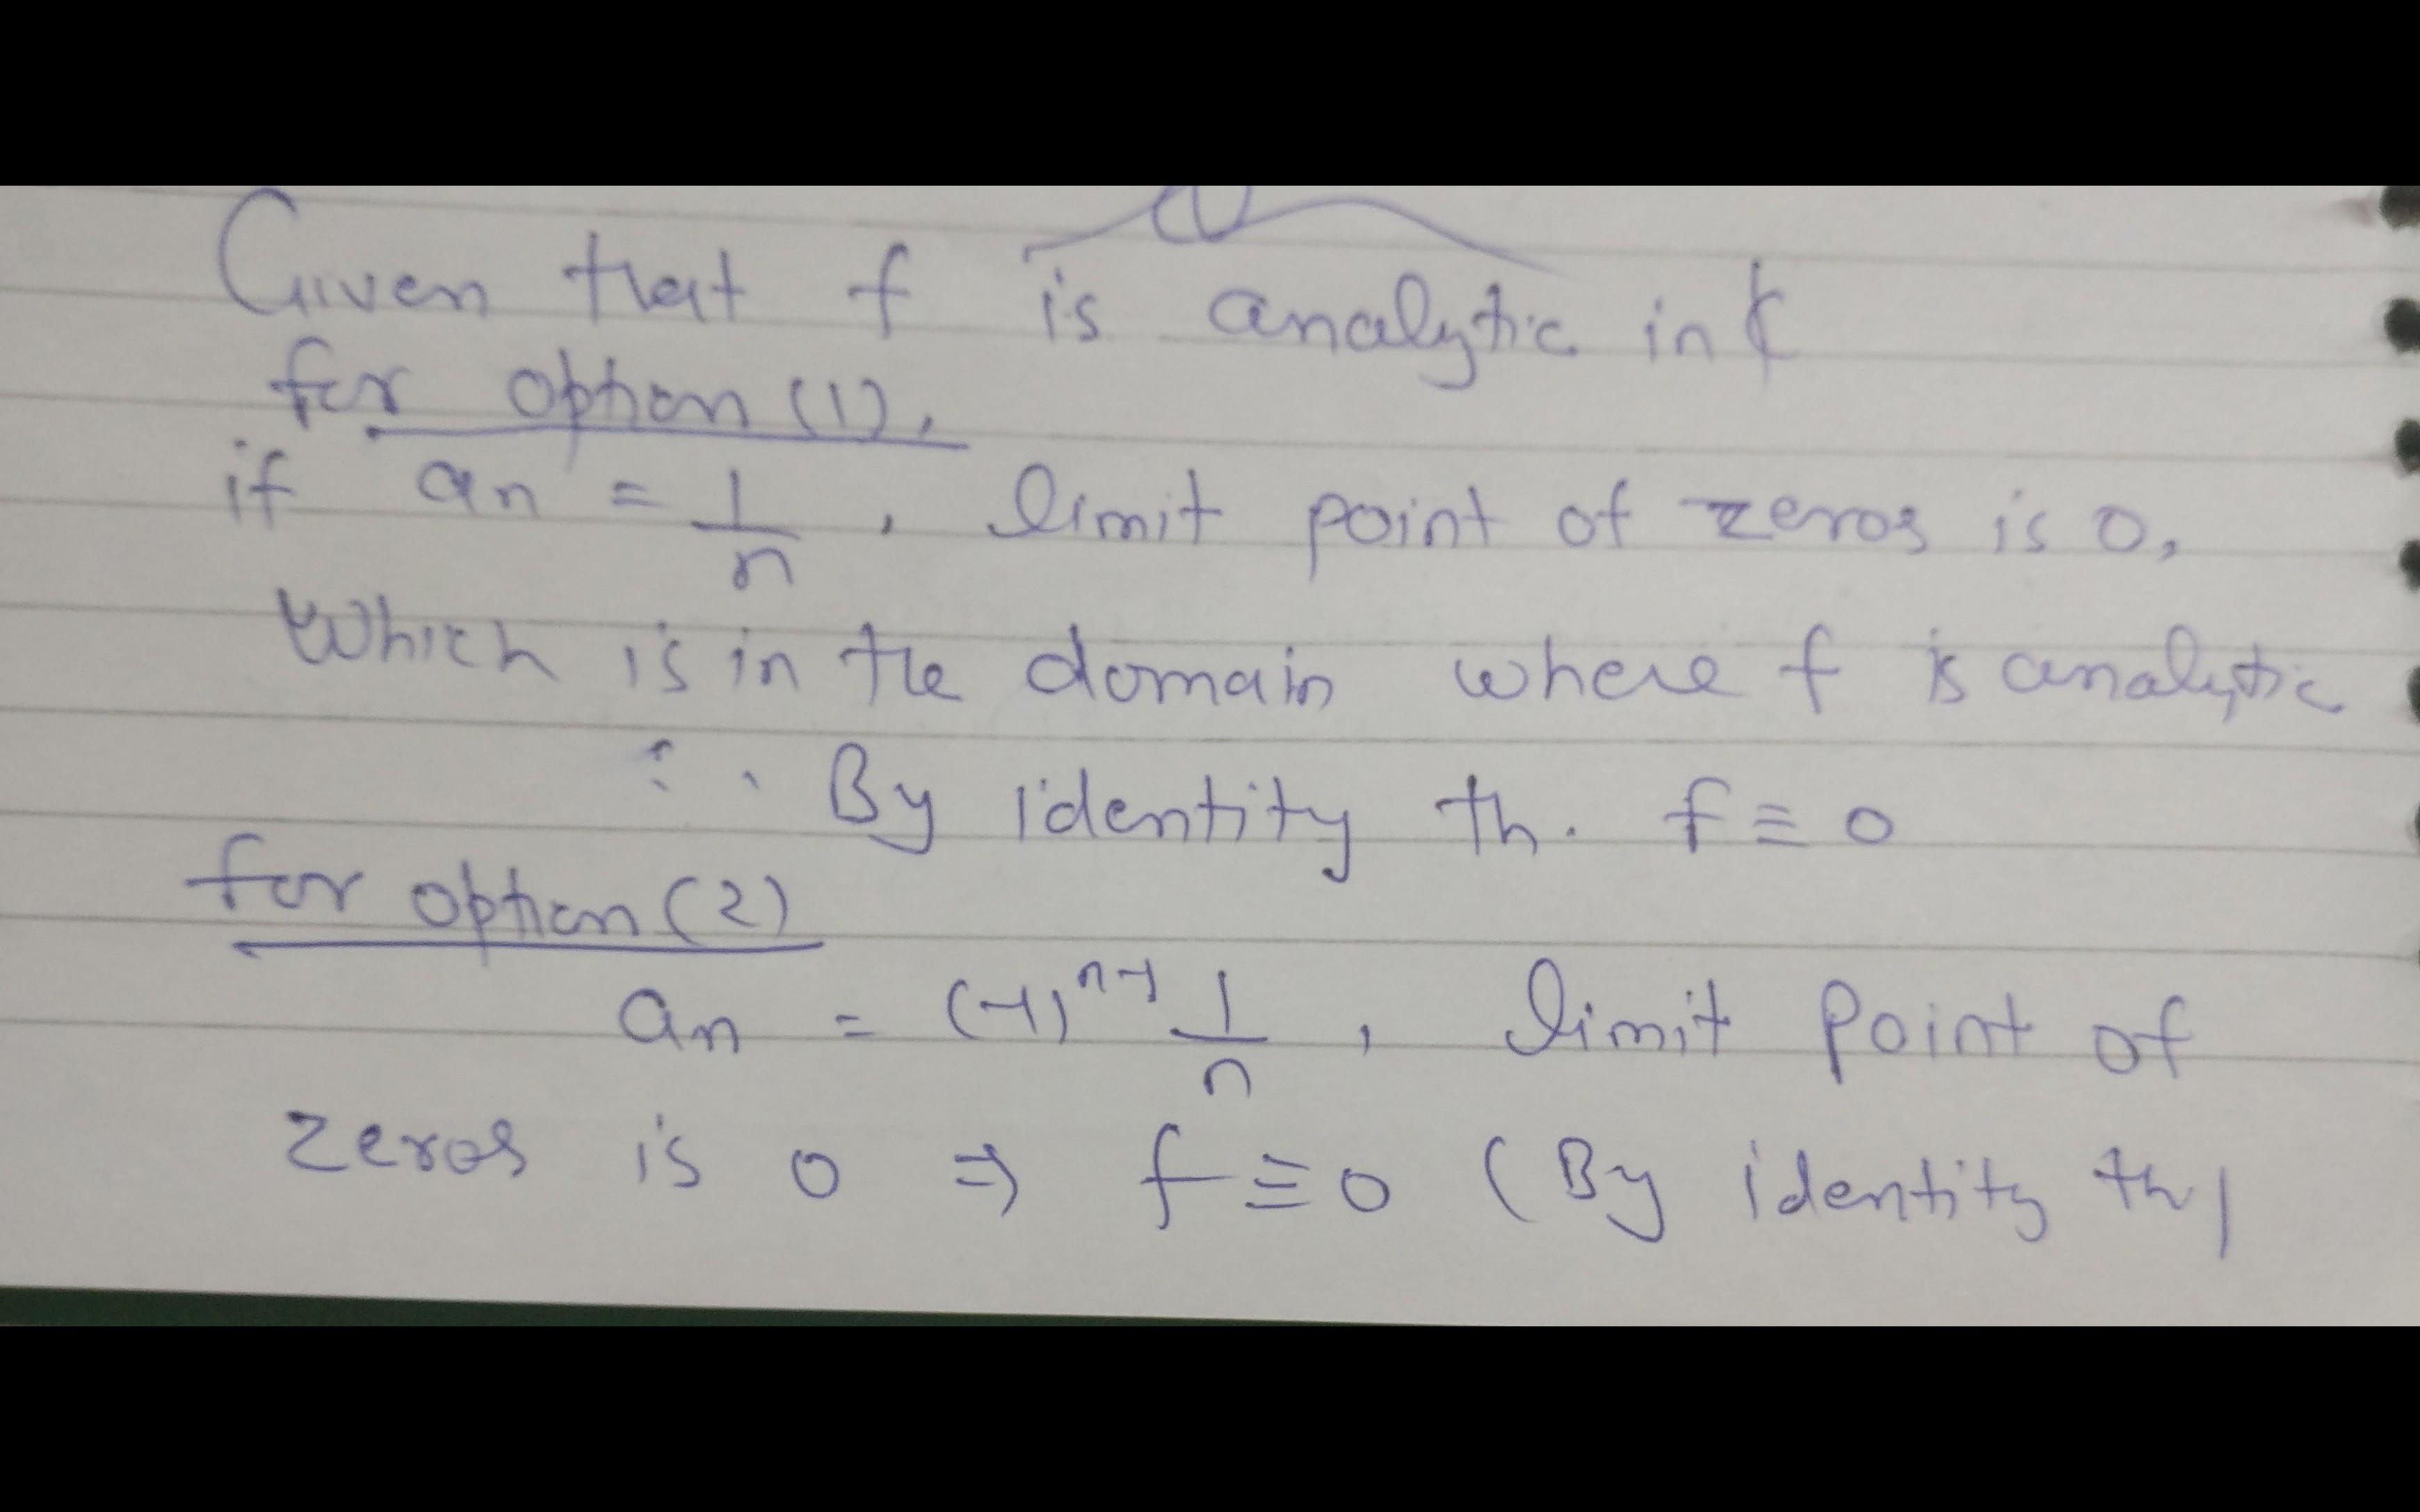 Given that f is analytic in ₵
for option (1),
if an = 1/n , limit point of zeros is 0,
Which is in the domain where f is analytic
∴ By identity th. f ≡ 0
for option (2)
an = (-1)^n-1 1/n , limit point of
zeros is 0 ⇒ f ≡ 0 (By identity th)